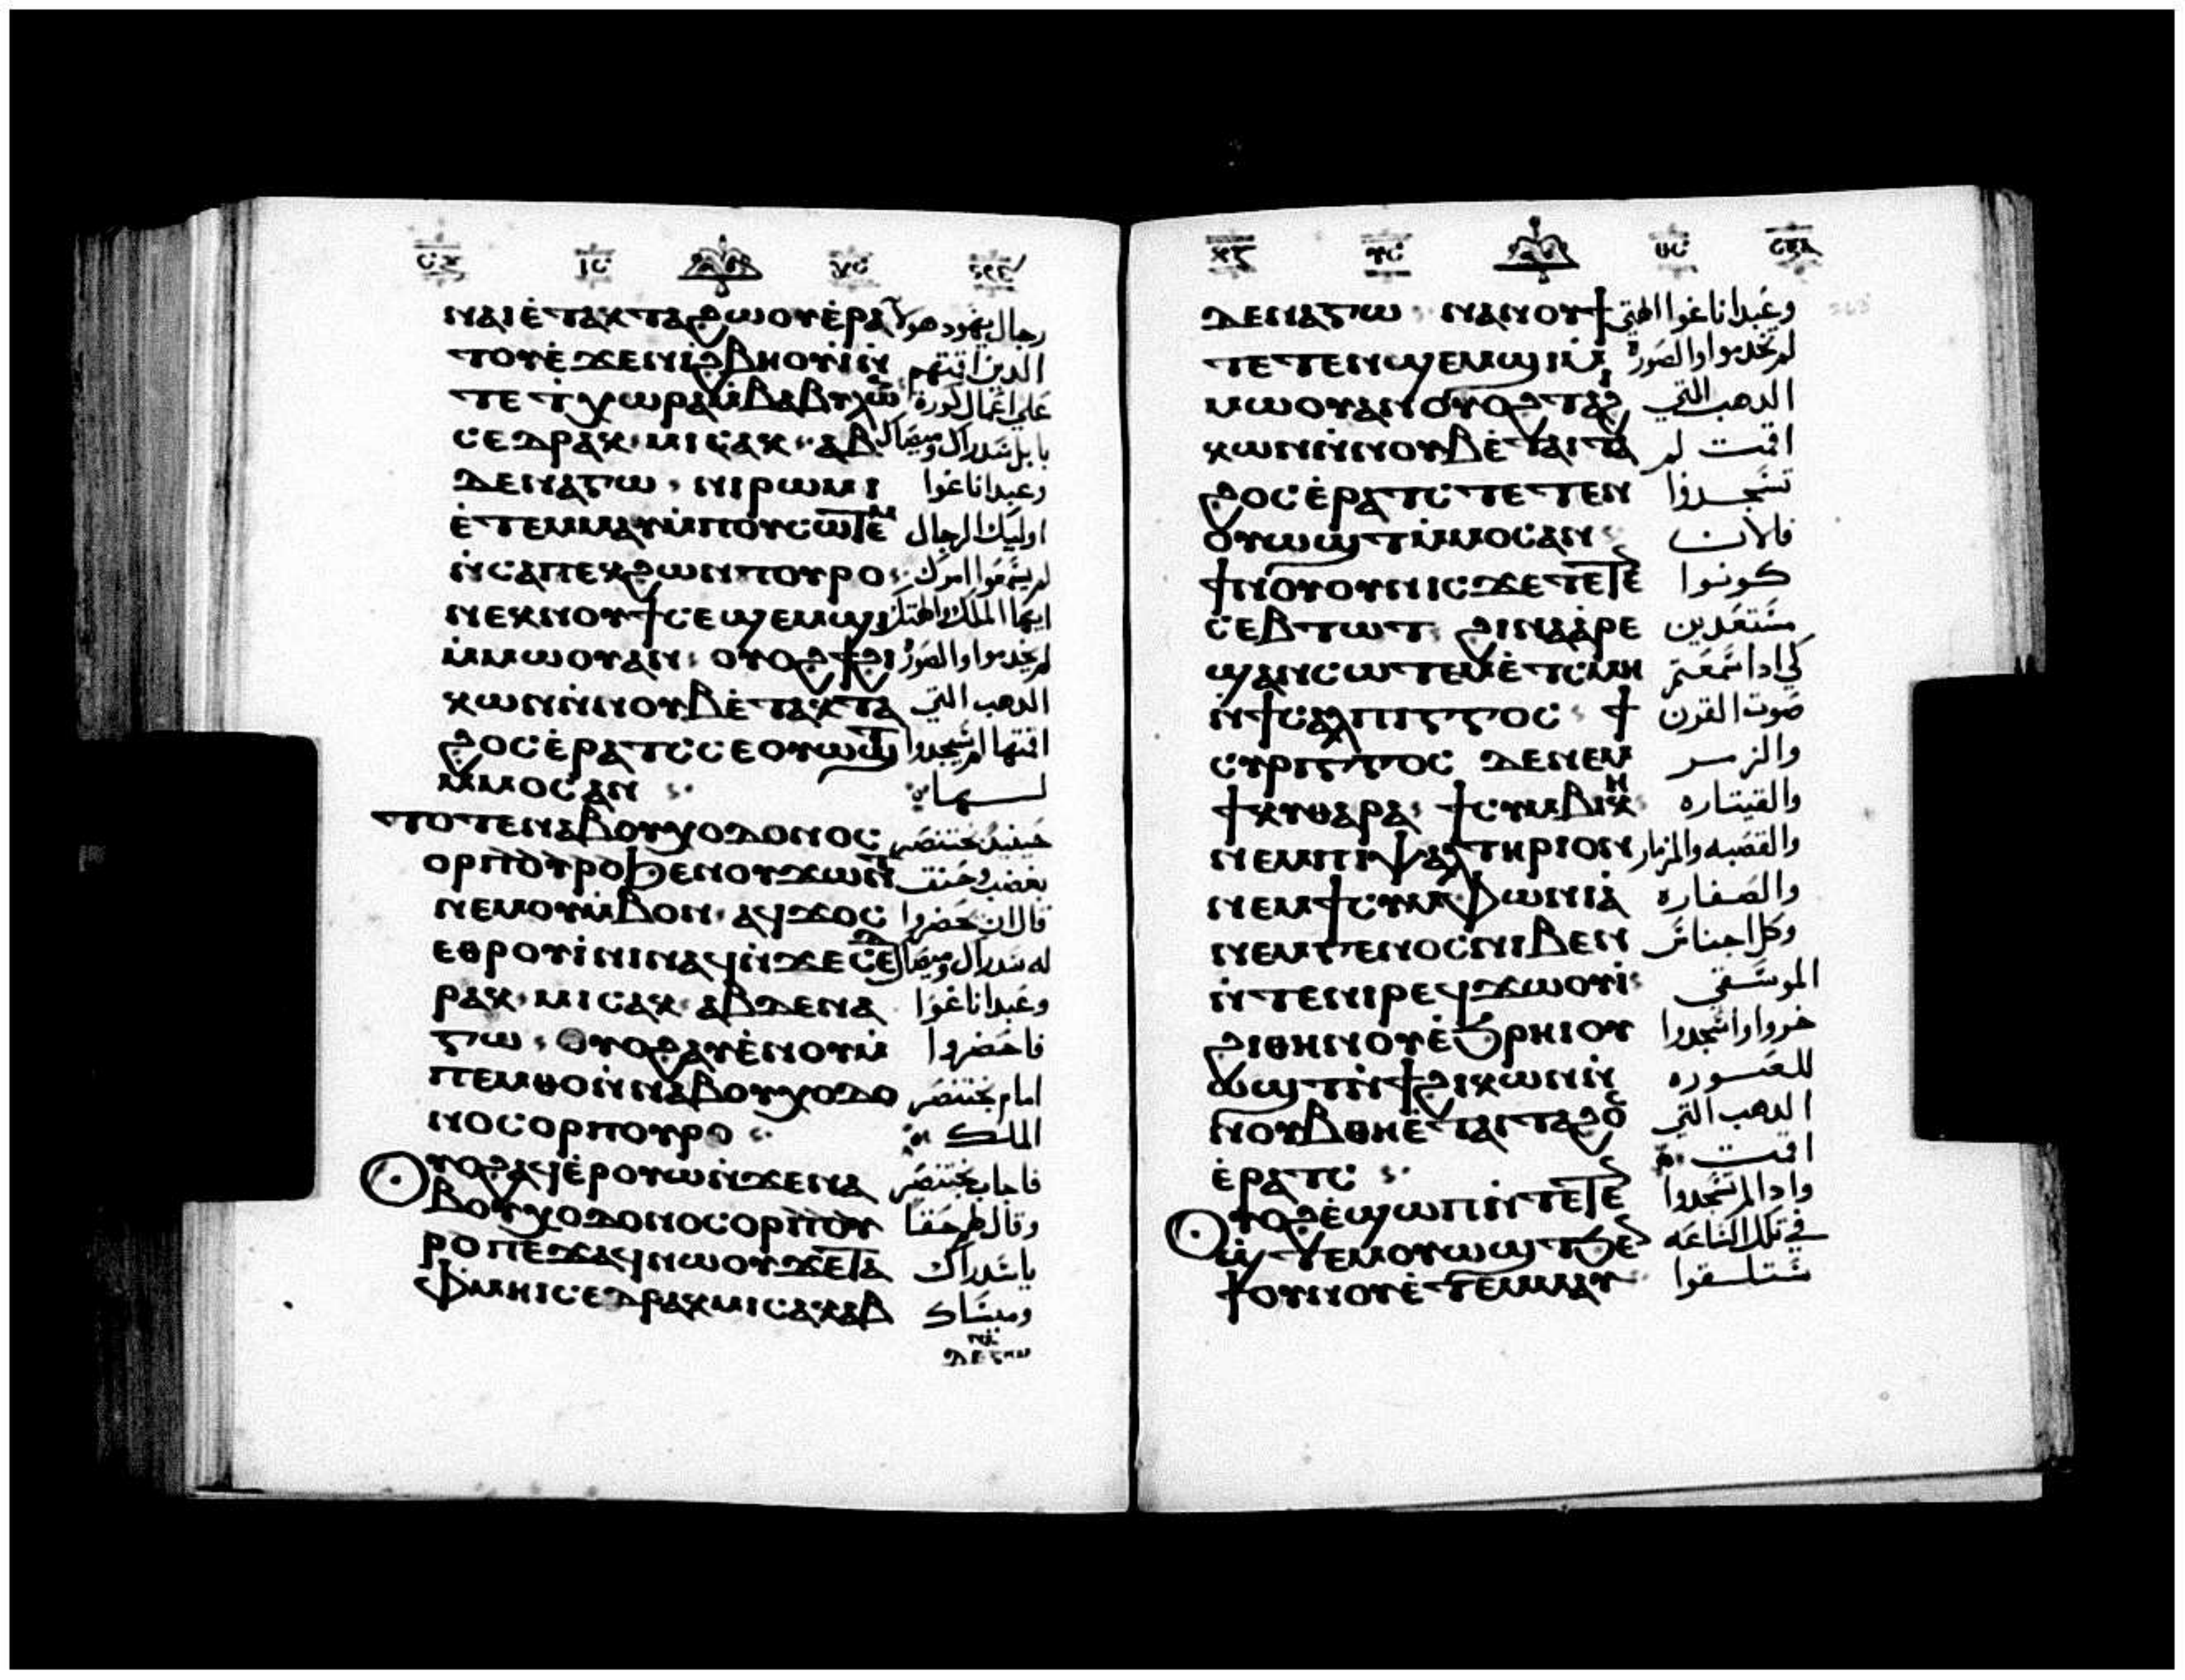 ⲛⲁⲓⲉ̀ⲧⲁⲕⲧⲁϩⲱⲟⲩⲉ̀ⲣⲁ
ⲧⲟⲩⲉ̀ϫⲉⲛⲛⲓϩⲃⲏⲟⲩⲓ̀ⲛ̀
ⲧⲉϯⲭⲱⲣⲁⲙ̀ⲃⲁⲃⲩⲗⲱⲛ
ⲥⲉⲇⲣⲁⲕ ⲙⲓⲥⲁⲕ ⲁⲃ
ⲇⲉⲛⲁⲅⲱ ⲛⲓⲣⲱⲙⲓ
ⲉ̀ⲧⲉⲙⲙⲁⲩⲙ̀ⲡⲟⲩⲥⲱⲧⲉⲙ
ⲛ̀ⲥⲁⲡⲉⲕϩⲱⲛⲡⲟⲩⲣⲟ
ⲛⲉⲕⲛⲟⲩϯⲥⲉϣⲉⲙϣⲓ
ⲙ̀ⲙⲱⲟⲩⲁⲛ ⲟⲩⲟϩϯϩⲓ
ⲕⲱⲛⲛ̀ⲛⲟⲩⲃⲉ̀ⲧⲁⲕⲧⲁ
ϩⲟⲥⲉ̀ⲣⲁⲧⲥⲥⲉⲟⲩⲱϣⲧ
ⲙ̀ⲙⲟⲥⲁⲛ
ⲧⲟⲧⲉⲛⲁⲃⲟⲩⲭⲟⲇⲟⲛⲟⲥ
ⲟⲣⲡⲟⲩⲣⲟϧⲉⲛⲟⲩϫⲱⲛⲧ
ⲛⲉⲙⲟⲩⲙ̀ⲃⲟⲛ ⲁϥϫⲟⲥ
ⲉⲑⲣⲟⲩⲓ̀ⲛⲓⲛⲁϥⲛ̀ϫⲉⲥⲉⲇ
ⲣⲁⲕ ⲙⲓⲥⲁⲕ ⲁⲃⲇⲉⲛⲁ
ⲅⲱ ⲟⲩⲟϩⲁⲩⲉ̀ⲛⲟⲩⲙ̀
ⲡⲉⲙⲑⲟⲛ̀ⲛⲁⲃⲟⲩⲭⲟⲇⲟ
ⲛⲟⲥⲟⲣⲡⲟⲩⲣⲟ
ⲟⲩⲟϩⲁϥⲉ̀ⲣⲟⲩⲱⲛ̀ϫⲉⲛⲁ
ⲃⲟⲩⲭⲟⲇⲟⲛⲟⲥⲟⲣⲡⲟⲩ
ⲣⲟⲡⲉϫⲁϥⲛⲱⲟⲩϫⲉⲧⲁ
ⲫⲙⲏⲓⲥⲉⲇⲣⲁⲕⲙⲓⲥⲁⲕⲁⲃ
رجال يهود هولا
الدين اقمتهم
على اعمال كورة
بابل شدراك وميصاك
وعبداناغوا
اوليك الرجال
لم يسمعوا امرك
ايها الملك والهتك
لم يخدموا والصورة
الدهب التي
اقمتها لم يسجدوا
لها
حينيد بختنصر
بغضب وحنق
قال ان يحضروا
له شدراك وميصاك
وعبداناغوا
فاحضروا
امام بختنصر
الملك
فاجاب بختنصر
وقال لهم حقا
ياشدراك
وميساك
ⲇⲉⲛⲁⲅⲱ ⲛⲁⲛⲟⲩϯ
ⲧⲉⲧⲉⲛϣⲉⲙϣⲓⲙ̀
ⲙⲱⲟⲩⲁⲛⲟⲩⲟϩⲧⲁϩⲓ
ⲕⲱⲛⲛ̀ⲛⲟⲩⲃⲉ̀ⲧⲁⲓⲧⲁ
ϩⲟⲥⲉ̀ⲣⲁⲧⲥⲧⲉⲧⲉⲛ
ⲟⲩⲱϣⲧⲙ̀ⲙⲟⲥⲁⲛ
ϯⲛⲟⲩⲟⲩⲛⲓⲥϫⲉⲧⲉⲧⲉⲛ
ⲥⲉⲃⲧⲱⲧ ϩⲓⲛⲁⲁ̀ⲣⲉ
ϣⲁⲛⲥⲱⲧⲉⲙⲉ̀ⲧⲥⲙⲏ
ⲛ̀ϯⲥⲁⲗⲡⲓⲅⲅⲟⲥ ϯ
ⲥⲩⲣⲓⲅⲅⲟⲥ ⲇⲉⲛⲉⲙ
ϯⲕⲩⲑⲁⲣⲁ ϯⲥⲩⲙⲃⲓⲕⲏ
ⲛⲉⲙⲡⲓⲯⲁⲗⲧⲏⲣⲓⲟⲛ
ⲛⲉⲙϯⲥⲩⲙⲫⲱⲛⲓⲁ̀
ⲛⲉⲙⲅⲉⲛⲟⲥⲛⲓⲃⲉⲛ
ⲛ̀ⲧⲉⲛⲓⲣⲉϥϫⲱⲟⲩⲓ̀
ϩⲓⲑⲏⲛⲟⲩⲉ̀ϧⲣⲏⲓⲟⲩ
ⲱϣⲧⲛ̀ϯϩⲓⲕⲱⲛⲛ̀
ⲛⲟⲩⲃⲑⲏⲉ̀ⲧⲁⲓⲧⲁϩⲟⲥ
ⲉ̀ⲣⲁⲧⲥ
ⲟⲩⲟϩⲉ̀ϣⲱⲡⲛ̀ⲧⲉⲧⲉⲛ
ϣ̀ⲧⲉⲙⲟⲩⲱϣⲧϧⲉⲛ
ϯⲟⲩⲛⲟⲩⲉ̀ⲧⲉⲙⲙⲁⲩ
وعبداناغوا الهتي
لم تخدموا والصورة
الدهب التي
اقمت لم
تسجدوا
فالان
كونوا
مستعدين
كي ادا سمعتم
صوت القرن
والزمر
والقيتاره
والقصبه والمزمار
والصفاره
وكل اجناس
الموسقي
خروا واسجدوا
للصوره
الدهب التي
اقمت
وادا لم تسجدوا
في تلك الساعه
ستلقوا